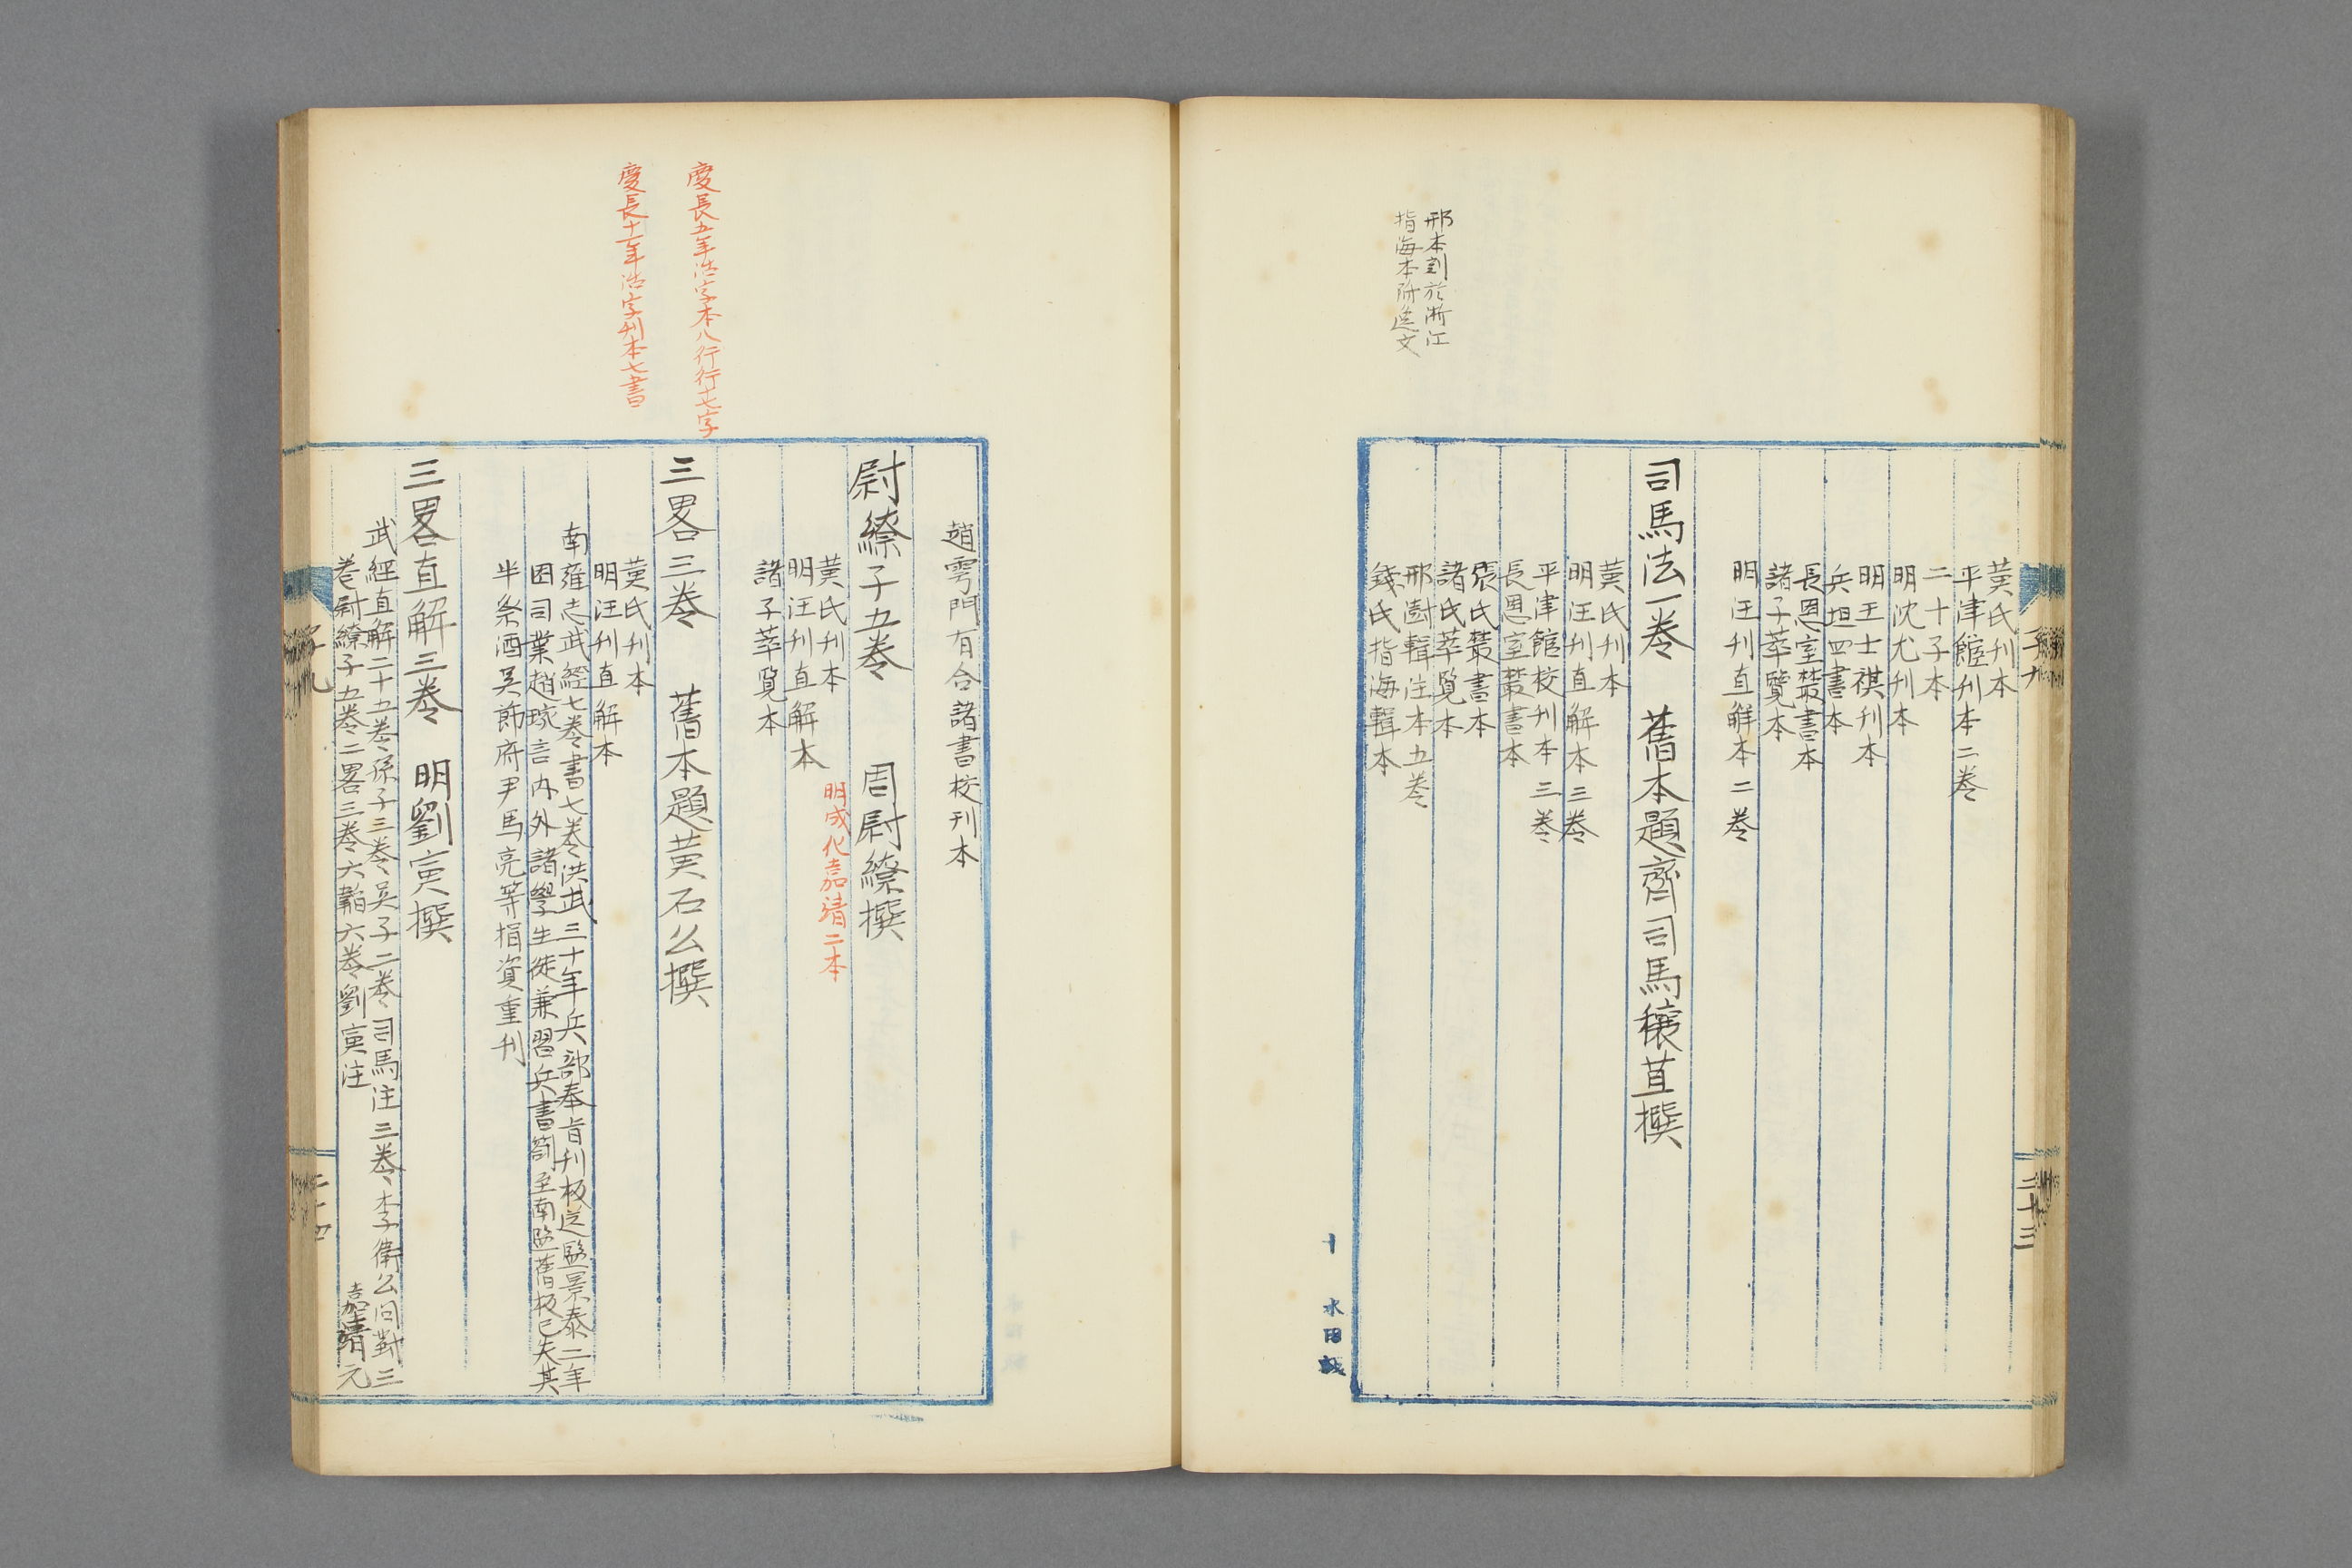 子九
二十三
黄氏刊本
平津館刊本二巻
二十子本
明沈尤刊本
明王士祺刊本
兵垣四書本
長恩室叢書本
諸子萃覽本
明汪刊直解本二巻
司馬法一巻 舊本題齊司馬穰苴撰
黄氏刊本
明汪刊直解本三巻
平津館校刊本三巻
長恩室叢書本
張氏叢書本
諸氏萃覧本
邢澍輯注本五巻
錢氏指海輯本
邢本刻於浙江
指海本附逸文
趙雩門有合諸書校刊本
尉繚子五巻 周尉繚撰
黄氏刊本
明汪刊直解本
明成化嘉靖二本
諸子萃覧本
三畧三巻 舊本題黄石公撰
慶長五年活字本八行行十七字
黄氏刊本
明汪刊直解本
慶長十一年活字刊本七書
南雍志武經七巻書七巻洪武三十年兵部奉旨刊板送監景泰二年
因司業趙琬言内外諸學生徒兼習兵書箚至南監舊板已失其
半祭酒吴節府尹馬亮等捐資重刊
三畧直解三巻 明劉寅撰
武經直解二十五巻孫子三巻吴子二巻司馬注三巻李衛公問對三
巻尉繚子五巻二畧三巻六韜六巻劉寅注 嘉靖元
子九
二十四